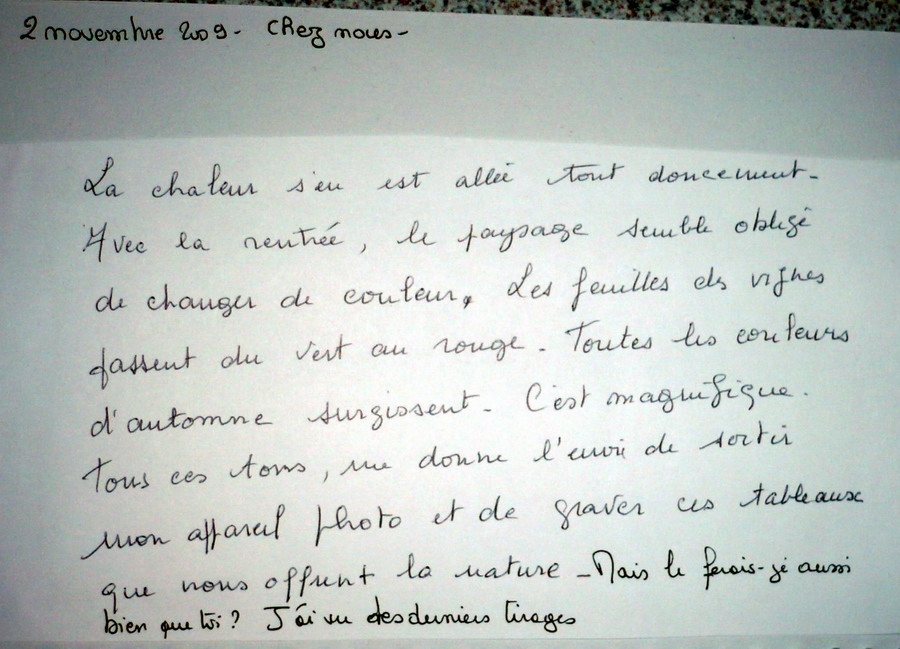 2 novembre 2009 - Chez nous -
La chaleur s'en est allée tout doucement -
Avec la rentrée, le paysage semble obligé
de changer de couleur. Les feuilles des vignes
passent du vert au rouge - Toutes les couleurs
d'automne surgissent - C'est magnifique.
Tous ces tons, me donne l'envie de sortir
mon appareil photo et de graver ces tableaux
que nous offrent la nature - Mais le ferais-je aussi
bien que toi ? J'ai vu tes derniers tirages